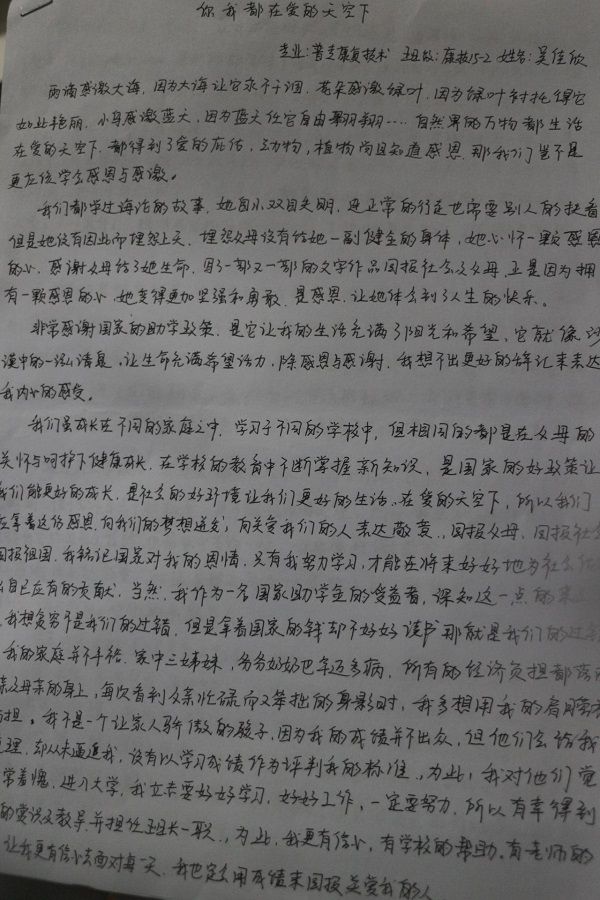 你我都在爱的天空下
专业:普专康复技术 班级:康技15-2 姓名:吴佳欣
雨滴感激大海,因为大海让它永不干涸,花朵感激绿叶,因为绿叶衬托得它
如此艳丽,小鸟感激蓝天,因为蓝天任它自由翱翔……自然界的万物都生活
在爱的天空下,都得到了爱的庇佑,动物,植物尚且知道感恩,那我们岂不是
更应该学会感恩与感激。
我们都学过海伦的故事,她自小双目失明,连正常的行走也需要别人的扶着
但是她没有因此而埋怨上天,埋怨父母没有给她一副健全的身体,她心怀一颗感恩
的心,感谢父母给了她生命,用了一部又一部的文字作品回报社会及父母,正是因为拥
有一颗感恩的心,她变得更加坚强和勇敢,是感恩,让她体会到了人生的快乐。
非常感谢国家的助学政策,是它让我的生活充满了阳光和希望,它就像沙
漠中的一泓清泉,让生命充满希望活力,除感恩与感谢,我想不出更好的辞汇来表达
我内心的感受。
我们虽成长在不同的家庭之中,学习于不同的学校中,但相同的都是在父母的
关怀与呵护下健康成长,在学校的教育中不断掌握新知识,是国家的好政策让
我们能更好的成长,是社会的好环境让我们更好的生活,在爱的天空下,所以我们
应拿着这份感恩,向我们的梦想进发,向关爱我们的人表达敬意,回报父母,回报社会
回报祖国,我铭记国家对我的恩情,只有我努力学习,才能在将来好好地为社会
自己应有的贡献,当然,我作为一名国家助学金的受益者,深知这一点的
,我想贫穷不是我们的过错,但是拿着国家的钱却不好好读书那就是我们的过错
我的家庭并不丰裕,家中三姊妹,爷爷奶奶也年迈多病,所有的经济负担都落
父母亲的身上,每次看到父亲忙碌而又笨拙的身影时,我多想用我的肩膀
担,我不是一个让家人骄傲的孩子,因为我的成绩并不出众,但他们会给我
理,却从未逼迫我,没有以学习成绩作为评判我的标准,为此,我对他们觉
常着愧,进入大学,我立志要好好学习,好好工作,一定要努力,所以有幸得到
的赏识及教导并担任班长一职,为此,我更有信心,有学校的帮助,有老师的
让我更有信心去面对每一天,我也定会用成绩来回报关爱我的人